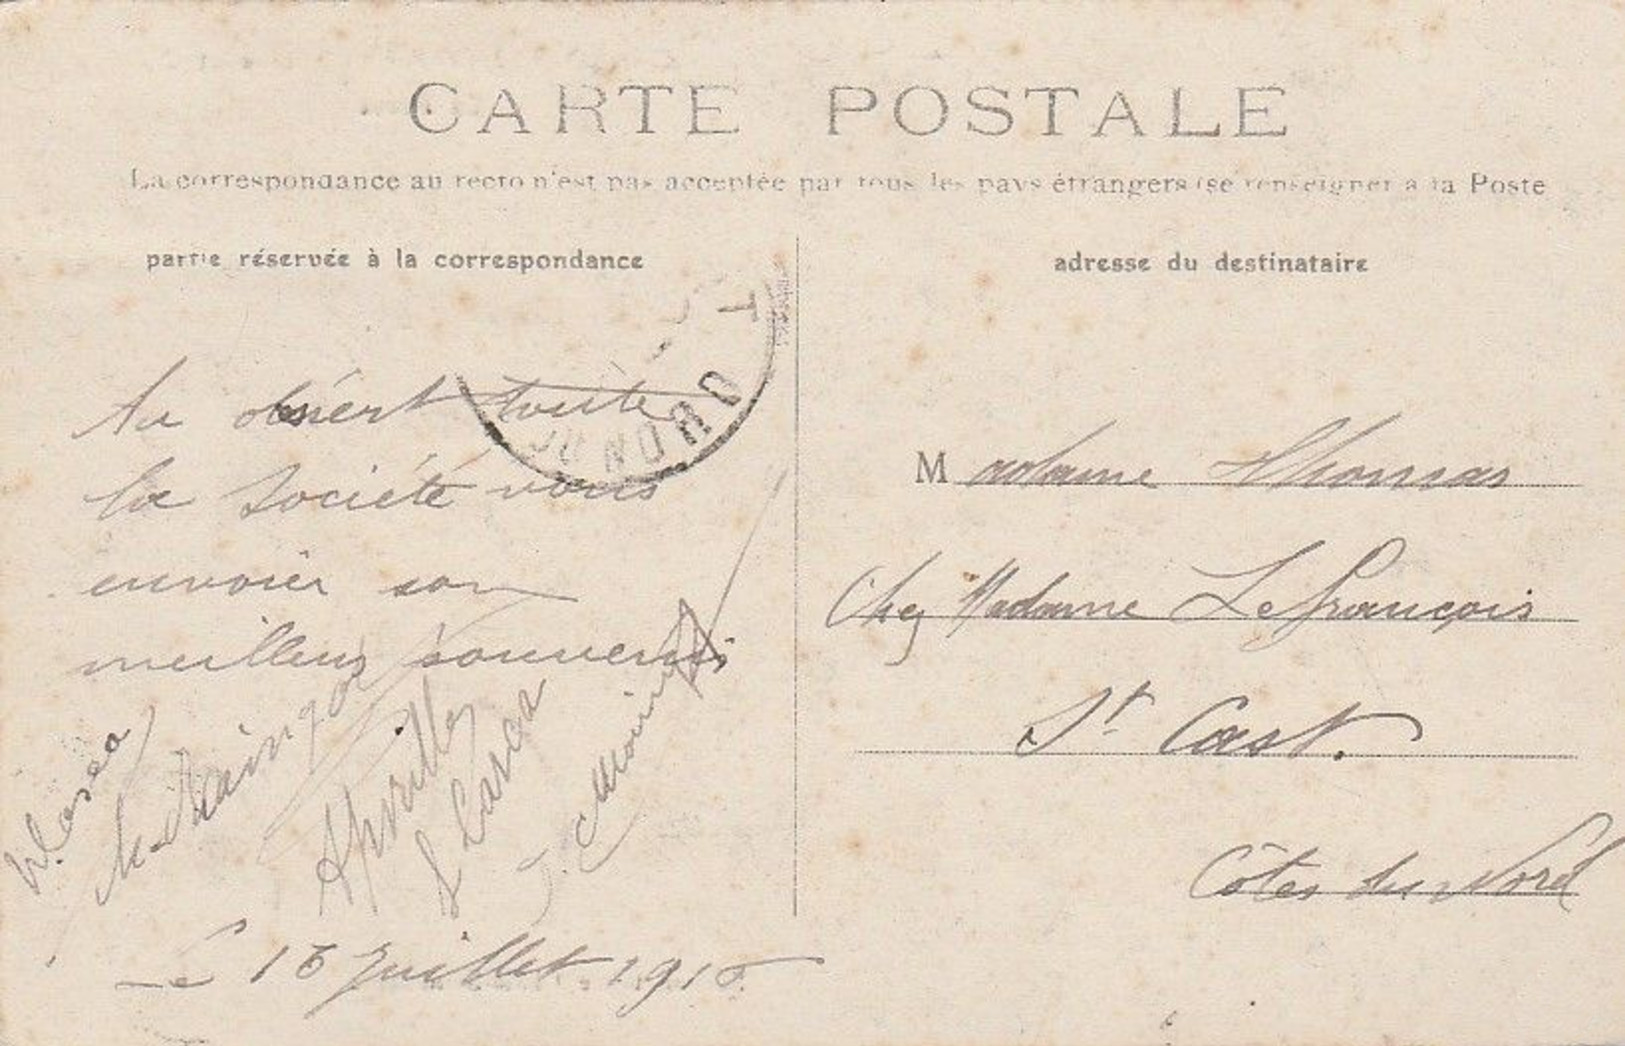 CARTE POSTALE
La correspondance au recto n'est pas acceptée par tous les pays étrangers (se renseigner à la Poste
partie réservée à la correspondance
adresse du destinataire
DU NORD
Au désért toute
la Société vous
envoier son
meilleurs souvenirs
Le 16 Juillet 1910
Madame Thomas
Chez Madame Lefrançois
St Cast.
Côtes du Nord